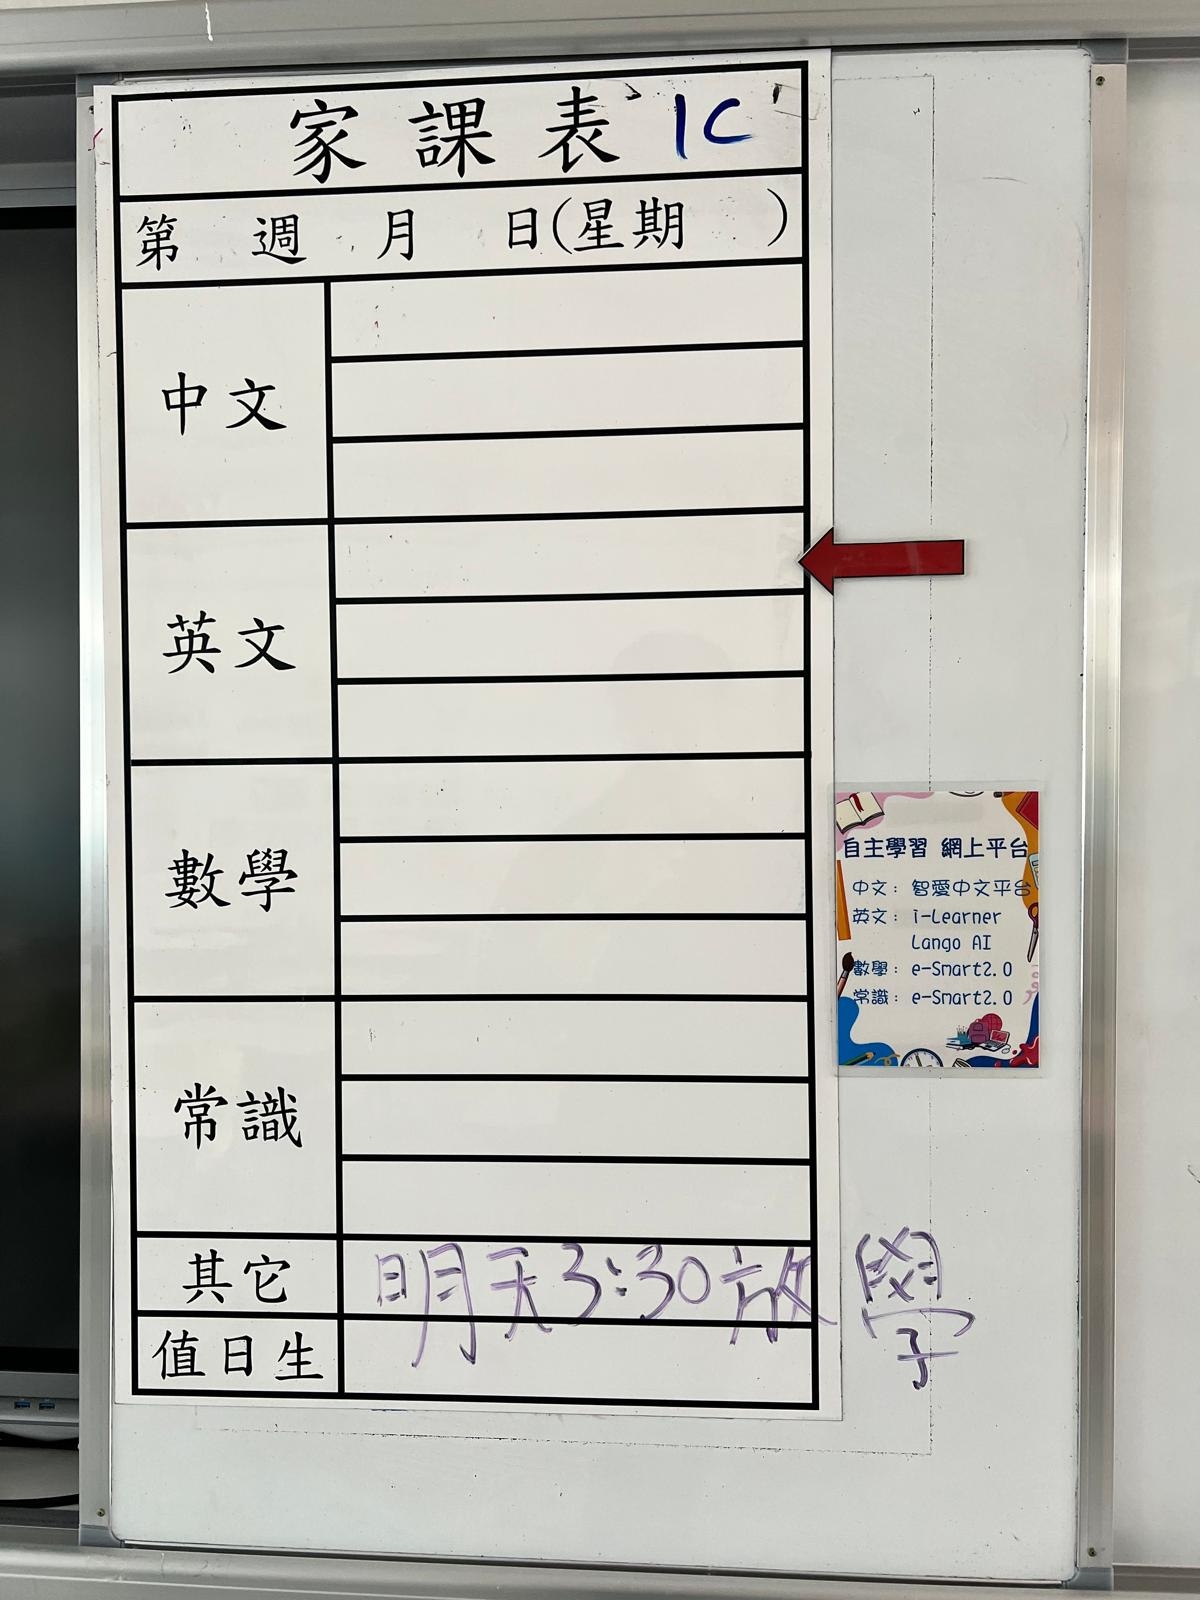 家課表 1C
第 週 月 日(星期 )
中文
英文
數學
常識
其它 明天3:30放學
值日生
自主學習 網上平台
中文: 智愛中文平台
英文: i-Learner
Lango AI
數學: e-Smart2.0
常識: e-Smart2.0